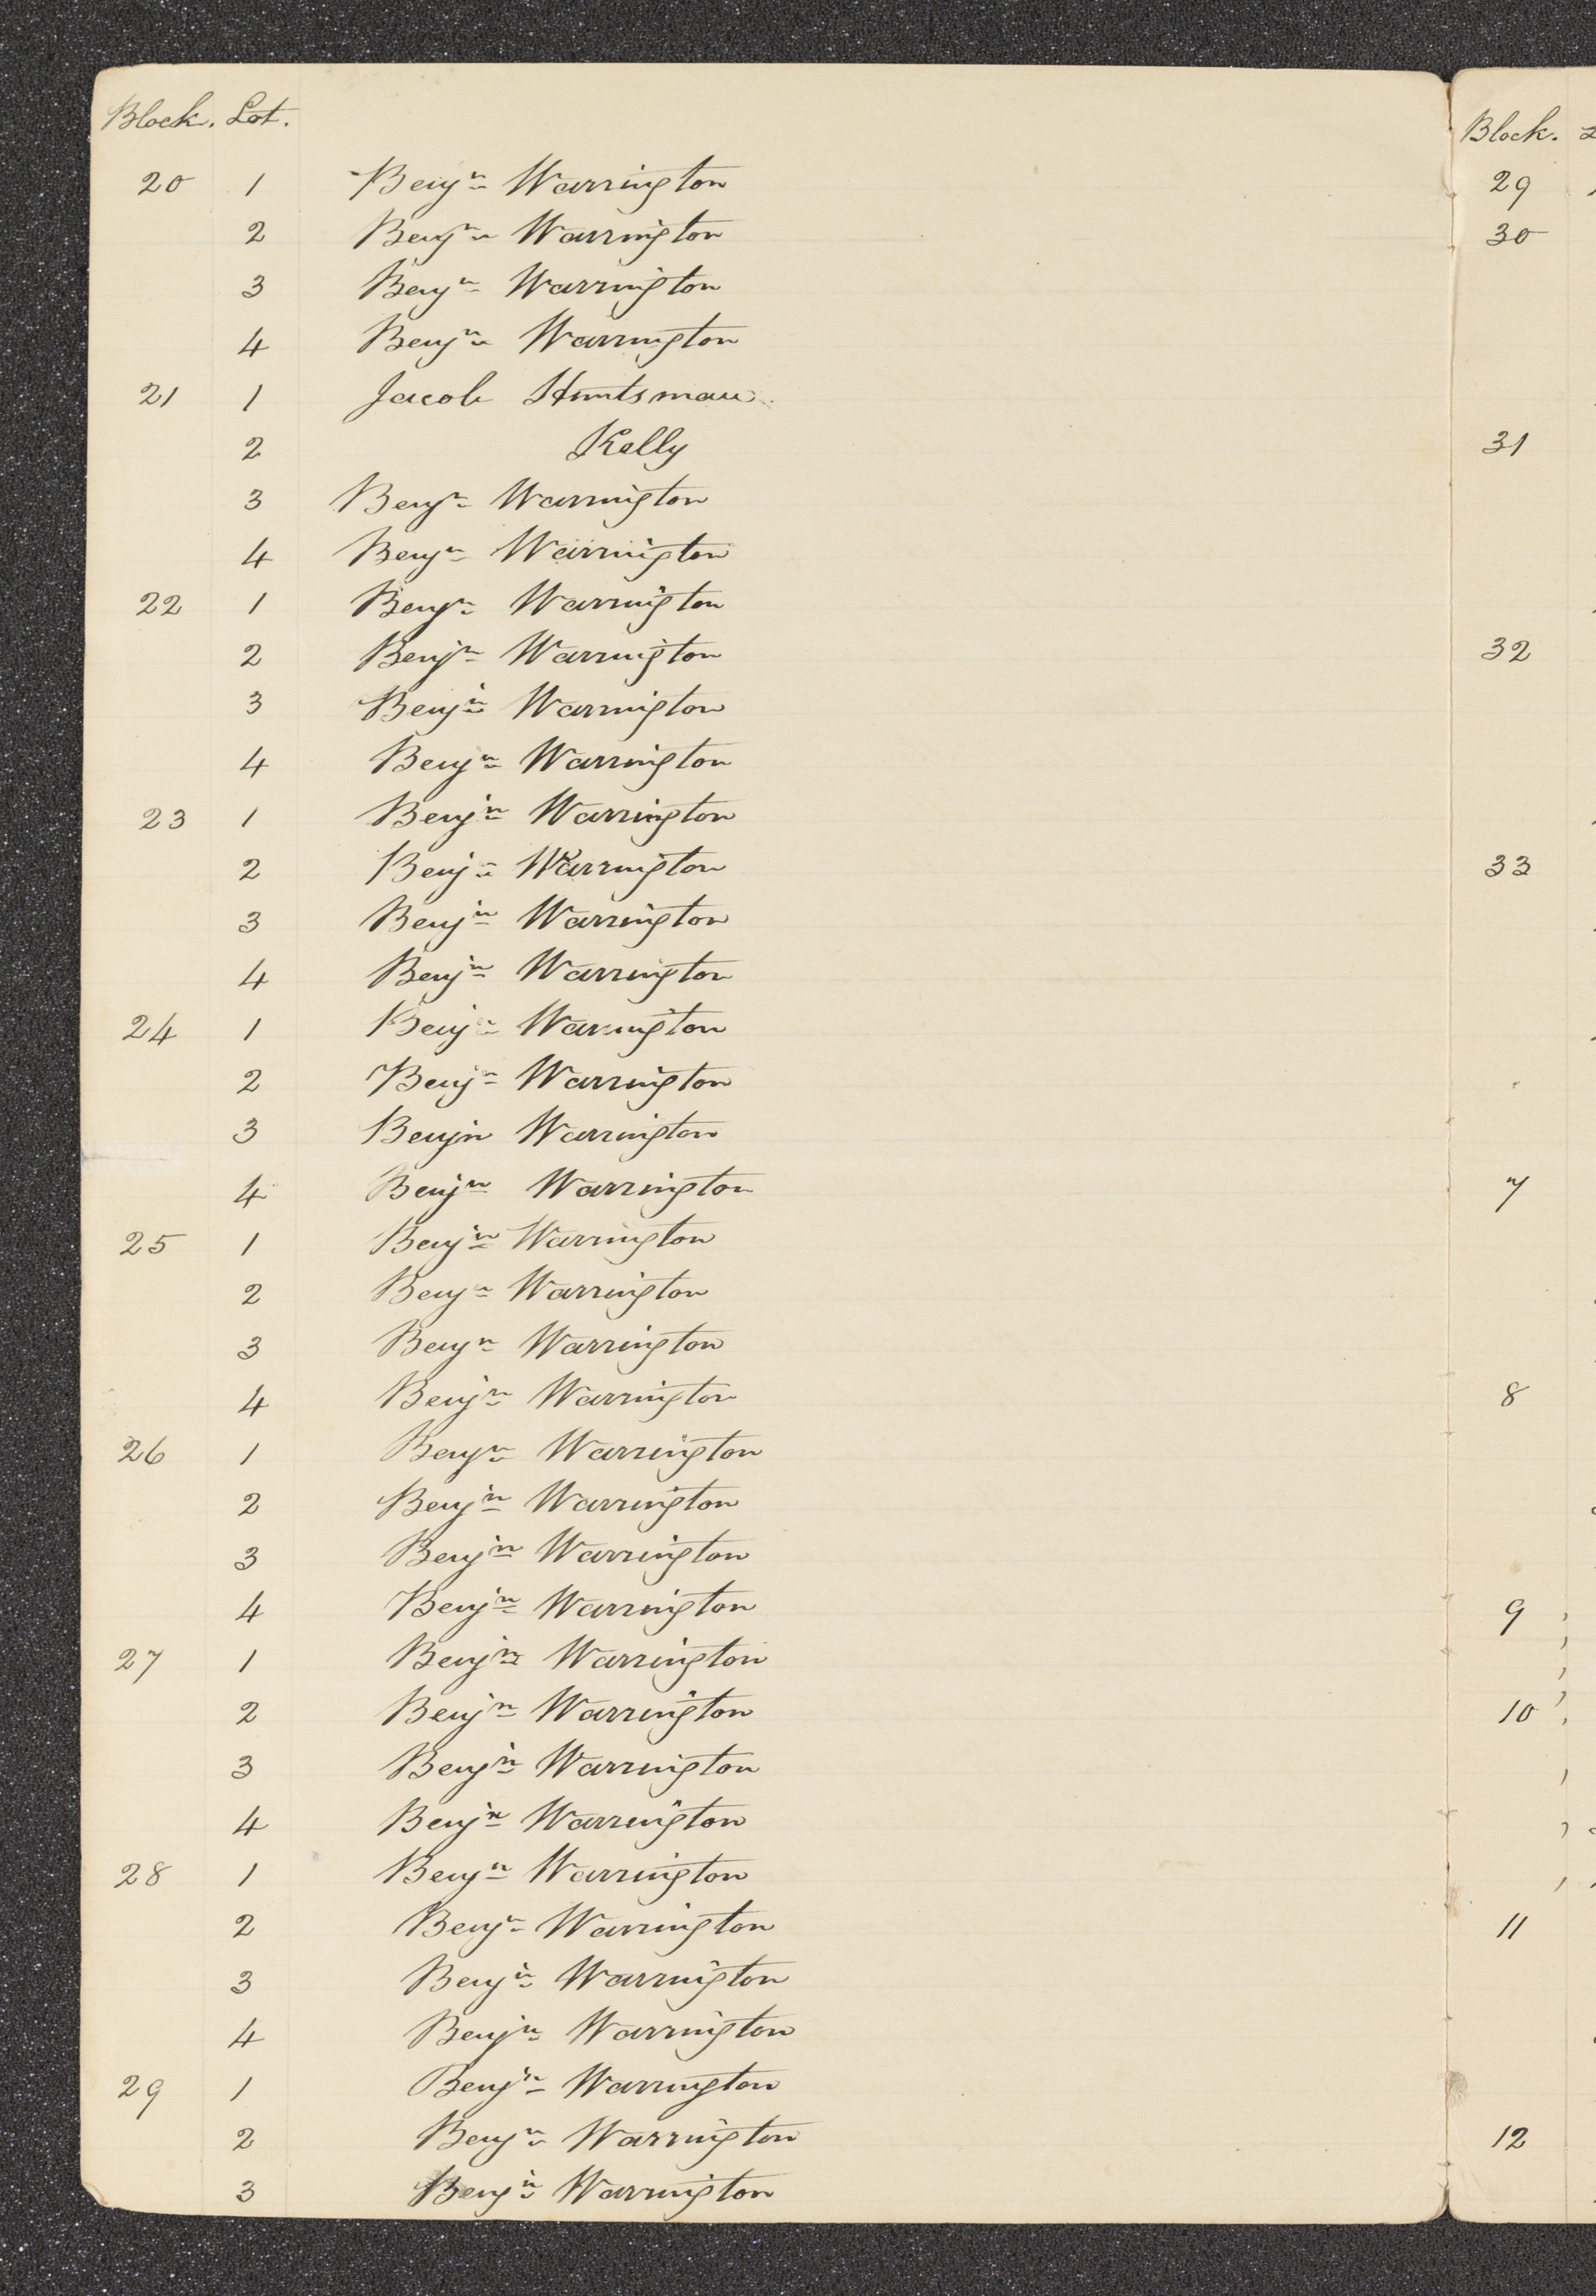 Block. Lot.
20 1 Benjn Warrington
2 Benjn Warrington
3 Benjn Warrington
4 Benjn Warrington
21 1 Jacob Huntsman
2 Kelly
3 Benjn Warrington
4 Benjn Warrington
22 1 Benjn Warrington
2 Benjn Warrington
3 Benjn Warrington
4 Benjn Warrington
23 1 Benjn Warrington
2 Benjn Warrington
3 Benjn Warrington
4 Benjn Warrington
24 1 Benjn Warrington
2 Benjn Warrington
3 Benjn Warrington
4 Benjn Warrington
25 1 Benjn Warrington
2 Benjn Warrington
3 Benjn Warrington
4 Benjn Warrington
26 1 Benjn Warrington
2 Benjn Warrington
3 Benjn Warrington
4 Benjn Warrington
27 1 Benjn Warrington
2 Benjn Warrington
3 Benjn Warrington
4 Benjn Warrington
28 1 Benjn Warrington
2 Benjn Warrington
3 Benjn Warrington
4 Benjn Warrington
29 1 Benjn Warrington
2 Benjn Warrington
3 Benjn Warrington
Block.
29
30
31
32
33
7
8
9
10
11
12